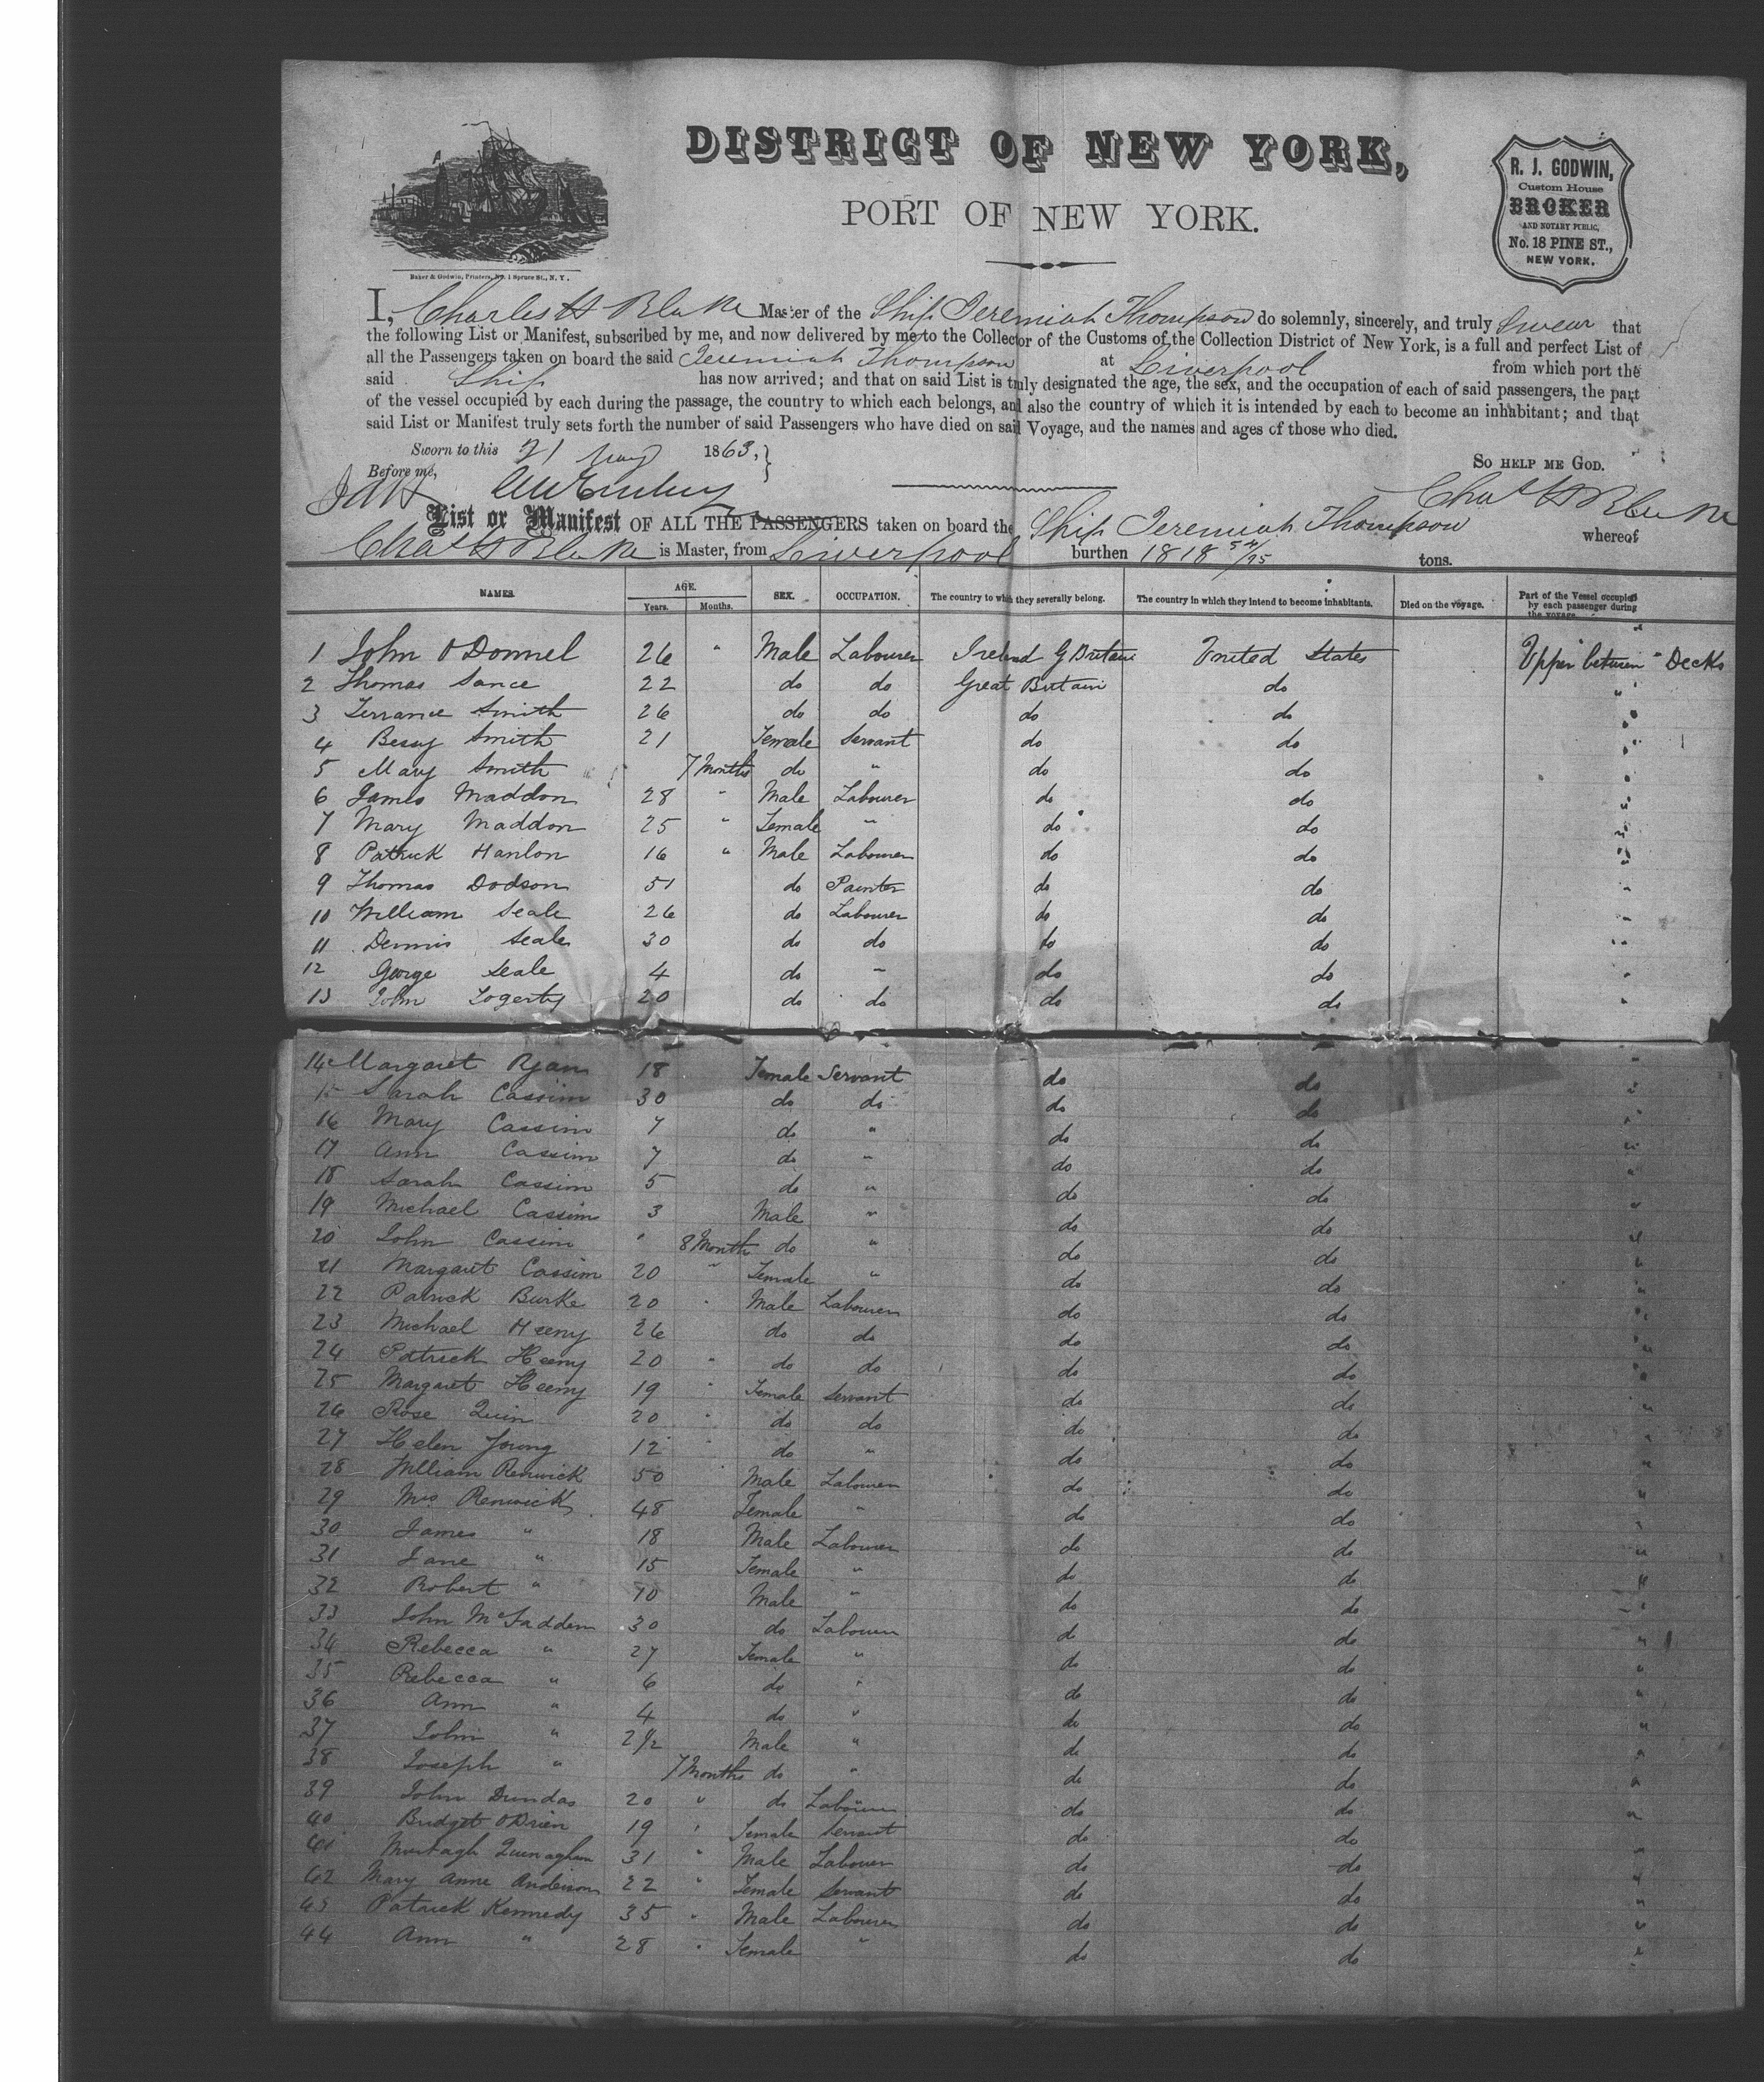 DISTRICT OF NEW YORK,
PORT OF NEW YORK.
Baker & Godwin, Printers, No. 1 Spruce St., N. Y.
R. J. GODWIN,
Custom House
BROKER
AND NOTARY PUBLIC,
No. 18 PINE ST.,
NEW YORK.
I, Charles H Blake Master of the Ship Jeremiah Thompson do solemnly, sincerely, and truly Swear that
the following List or Manifest, subscribed by me, and now delivered by me to the Collector of the Customs of the Collection District of New York, is a full and perfect List of
all the Passengers taken on board the said Jeremiah Thompson at Liverpool from which port the
said Ship has now arrived; and that on said List is truly designated the age, the sex, and the occupation of each of said passengers, the part
of the vessel occupied by each during the passage, the country to which each belongs, and also the country of which it is intended by each to become an inhabitant; and that
said List or Manifest truly sets forth the number of said Passengers who have died on said Voyage, and the names and ages of those who died.
Sworn to this 21 1863,
Before me,
SO HELP ME GOD.
Chas H Blake
List or Manifest OF ALL THE PASSENGERS taken on board the Ship Jeremiah Thompson whereof
Chas H Blake is Master, from Liverpool burthen 1818 54/95 tons.
NAMES. AGE. Years. Months. SEX. OCCUPATION. The country to which they severally belong. The country in which they intend to become inhabitants. Died on the voyage. Part of the Vessel occupied by each passenger during the voyage.
1 John O'Donnel 26 " Male Labourer Ireland G Britain United States Upper between Decks
2 Thomas Sance 22 do do Great Britain do "
3 Terrance Smith 26 do do do do "
4 Bessy Smith 21 Female Servant do do "
5 Mary Smith 7 Months do " do do "
6 James Maddon 28 " Male Labourer do do "
7 Mary Maddon 25 " Female " do do "
8 Patrick Hanlon 16 " Male Labourer do do "
9 Thomas Dodson 51 do Painter do do "
10 William Seale 26 do Labourer do do "
11 Dennis Seale 30 do do do do "
12 George Seale 4 do " do do "
13 John Fogerty 20 do do do do "
14 Margaret Ryan 18 Female Servant do do "
15 Sarah Cassim 30 do do do do "
16 Mary Cassim 7 do " do do "
17 Ann Cassim 7 do " do do "
18 Sarah Cassim 5 do " do do "
19 Michael Cassim 3 Male " do do "
20 John Cassim " 8 Month do " do do "
21 Margaret Cassim 20 " Female " do do "
22 Patrick Burke 20 " Male Labourer do do "
23 Michael Heeny 26 do do do do "
24 Patrick Heeny 20 " do do do do "
25 Margaret Heeny 19 " Female Servant do do "
26 Rose Quin 20 " do do do do "
27 Helen Young 12 " do " do do "
28 William Renwick 50 " Male Labourer do do "
29 Mrs Renwick 48 Female " do do "
30 James " 18 Male Labourer do do "
31 Jane " 15 Female " do do "
32 Robert " 10 Male " do do "
33 John McFadden 30 do Labourer do do "
34 Rebecca " 27 Female " do do "
35 Rebecca " 6 do " do do "
36 Ann " 4 do " do do "
37 John " 2 1/2 Male " do do "
38 Joseph " 7 Months do " do do "
39 John Dundas 20 " do Labourer do do "
40 Bridget O'Brien 19 " Female Servant do do "
41 Murtagh 31 " Male Labourer do do "
42 Mary Anne Anderson 22 " Female Servant do do "
43 Patrick Kennedy 35 " Male Labourer do do "
44 Ann " 28 " Female " do do "